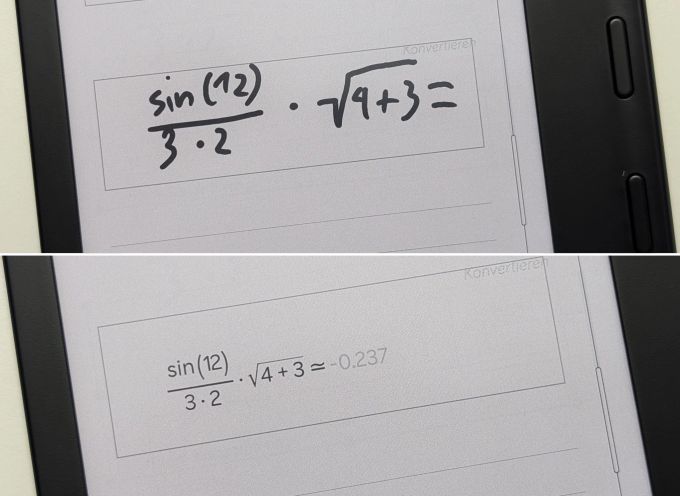 Konvertieren
sin(12)
3 · 2
· √4+3 =
Konvertieren
sin(12)
3 · 2
· √4+3 ≃ -0.237